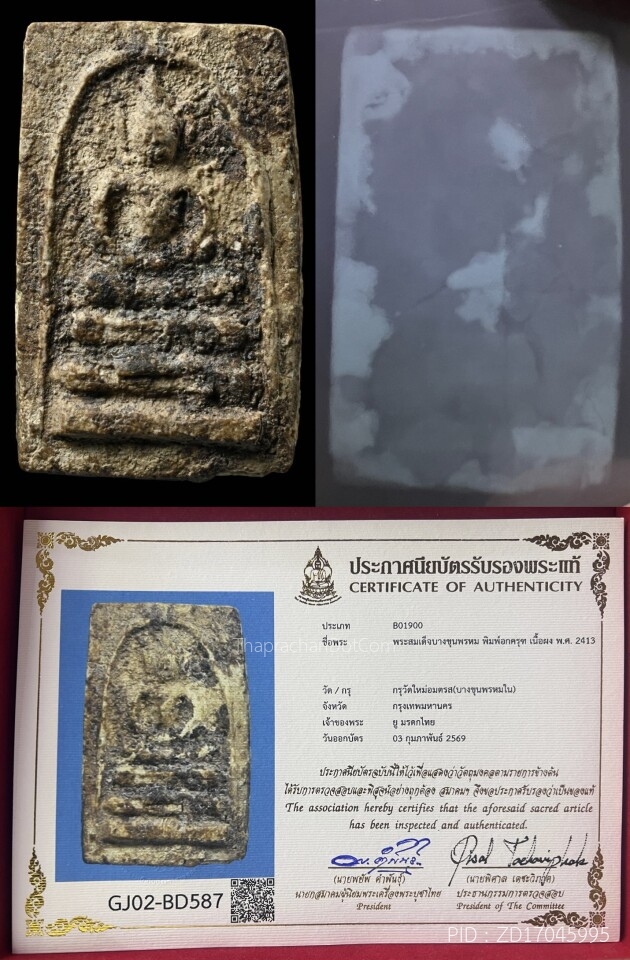 ประกาศนียบัตรรับรองพระแท้
CERTIFICATE OF AUTHENTICITY
ประเภท B01900
ชื่อพระ พระสมเด็จบางขุนพรหม พิมพ์อกครุฑ เนื้อผง พ.ศ. 2413
วัด / กรุ กรุวัดใหม่อมตรส(บางขุนพรหมใน)
จังหวัด กรุงเทพมหานคร
เจ้าของพระ ยู มรดกไทย
วันออกบัตร 03 กุมภาพันธ์ 2569
ThaprachanDotCom
ประกาศนียบัตรฉบับนี้ให้ไว้เพื่อแสดงว่าวัตถุมงคลตามรายการข้างต้น
ได้รับการตรวจสอบและพิสูจน์อย่างถูกต้อง สมาคมฯ จึงขอประกาศรับรองว่าเป็นของแท้
The association hereby certifies that the aforesaid sacred article
has been inspected and authenticated.
(นายพยัพ คำพันธุ์) (นายพิศาล เตชะวิภาค)
นายกสมาคมผู้นิยมพระเครื่องพระบูชาไทย ประธานกรรมการตรวจสอบ
President President of The Committee
GJ02-BD587
PID : ZD17045995